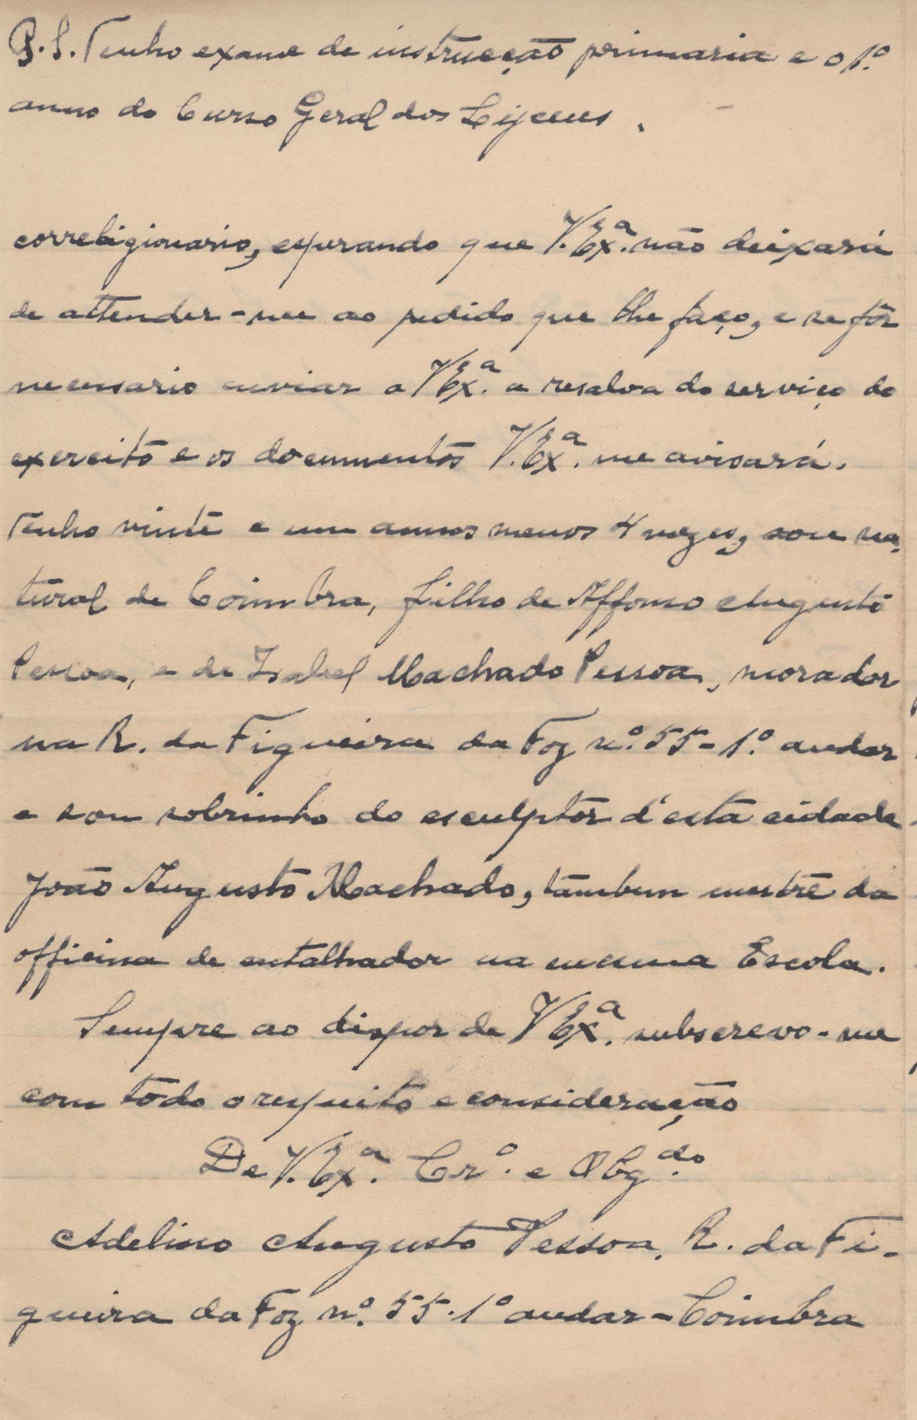 P.S. Tenho exame de instrucção primaria e o 1.º
anno do Curso Geral dos Lyceus.
correligionario, esperando que V. Ex.ª não deixará
de attender-me ao pedido que lhe faço, e se fôr
necessario enviar a V Ex.ª a resalva do serviço do
exercito e os documentos V. Ex.ª me avisará.
Tenho vinte e um annos menos 4 mezes, sou na-
tural de Coimbra, filho de Affonso Augusto
Pessoa, e de Isabel Machado Pessoa, morador
na R. da Figueira da Foz n.º 55-1.º andar
e sou sobrinho do esculptor d'esta cidade
João Augusto Machado, tambem mestre da
officina de entalhador na mesma Escola.
Sempre ao dispor de V Ex.ª subscrevo-me
com todo o respeito e consideração
De V. Ex.ª Cr.º e Obg.do
Adelino Augusto Pessoa, R. da Fi-
gueira da Foz n.º 55-1º andar-Coimbra